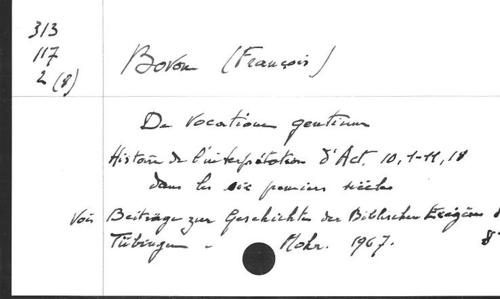 313
117
2 (8)
Bovon (François)
De vocatione gentium
Histoire de l'interprétation d'Act. 10, 1-11, 18
dans les six premiers siècles
Voir Beiträge zur Geschichte der Biblischen Exegese 8
Tübingen - Mohr. 1967. 8°